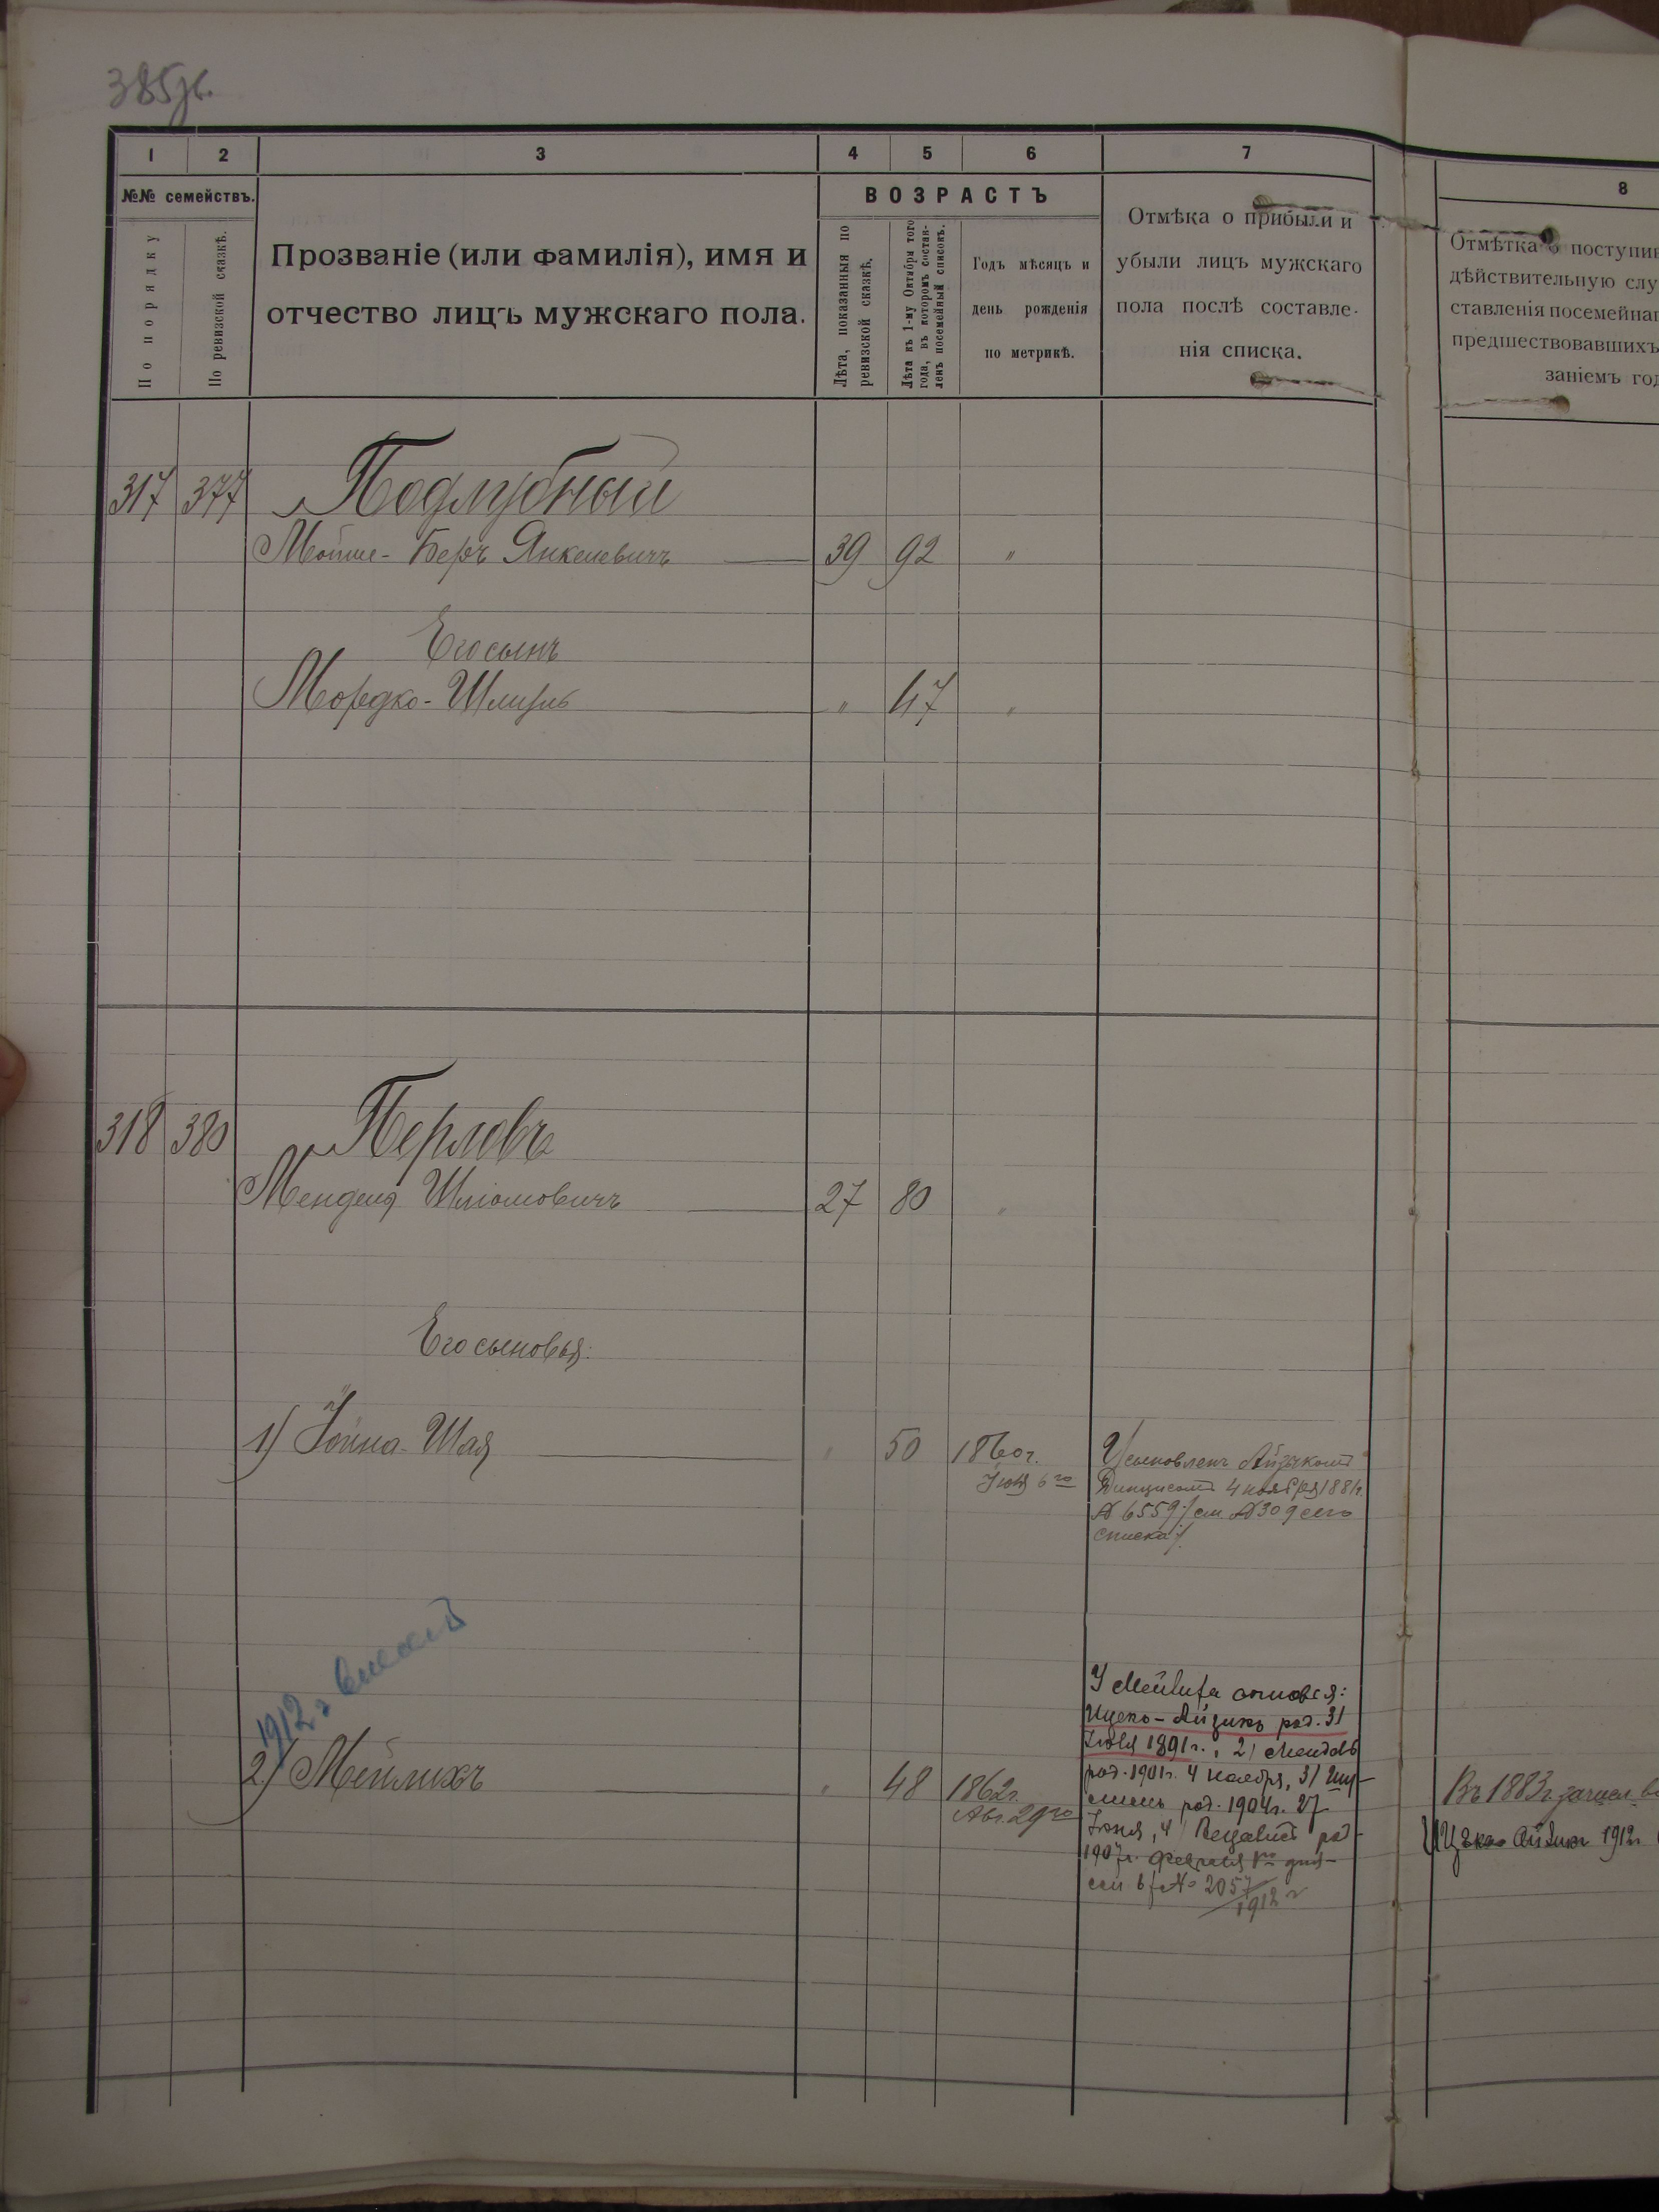 385об.
1 2 3 4 5 6 7 8
№№ семействъ.
По порядку
По ревизской сказкѣ.
Прозваніе (или фамилія), имя и
отчество лицъ мужскаго пола.
ВОЗРАСТЪ
Лѣта, показанныя по
ревизской сказкѣ.
Лѣта къ 1-му Октября того
года, въ которомъ состав-
ленъ посемейный списокъ.
Годъ мѣсяцъ и
день рожденія
по метрикѣ.
Отмѣка о прибыли и
убыли лицъ мужскаго
пола послѣ составле-
нія списка.
Отмѣтка о поступив
дѣйствительную слу
ставленія посемейнаг
предшествовавшихъ
заніемъ год
317 377 Подлубный
Мойше-Беръ Янкелевичъ 39 92 "
Его сынъ
Мордко-Шлизль " 47 "
318 380 Перловъ
Мендель Шліомовичъ 27 80 "
Его сыновья:
1) Іойна-Шая " 50 1860г.
Іюля 6го
Усыновленъ Айзикомъ
4 ноября 1881г.
№ 6559 /см. № 309 сего
списка/.
1912 г
2) Мейлихъ " 48 1862г.
Авг. 29го
У Мейлиха сыновья:
Ицко-Айзикъ род. 31
Іюля 1891г., 2) Мендель
род. 1901г. 4 ноября, 3)
род. 1904г. 27
Іюня, 4) Бецалель род.
1907г. Февраля 1го дня
№ 2057/1912 г
Въ 1883г. зачисл. в
Ицко Айзикъ 1912г